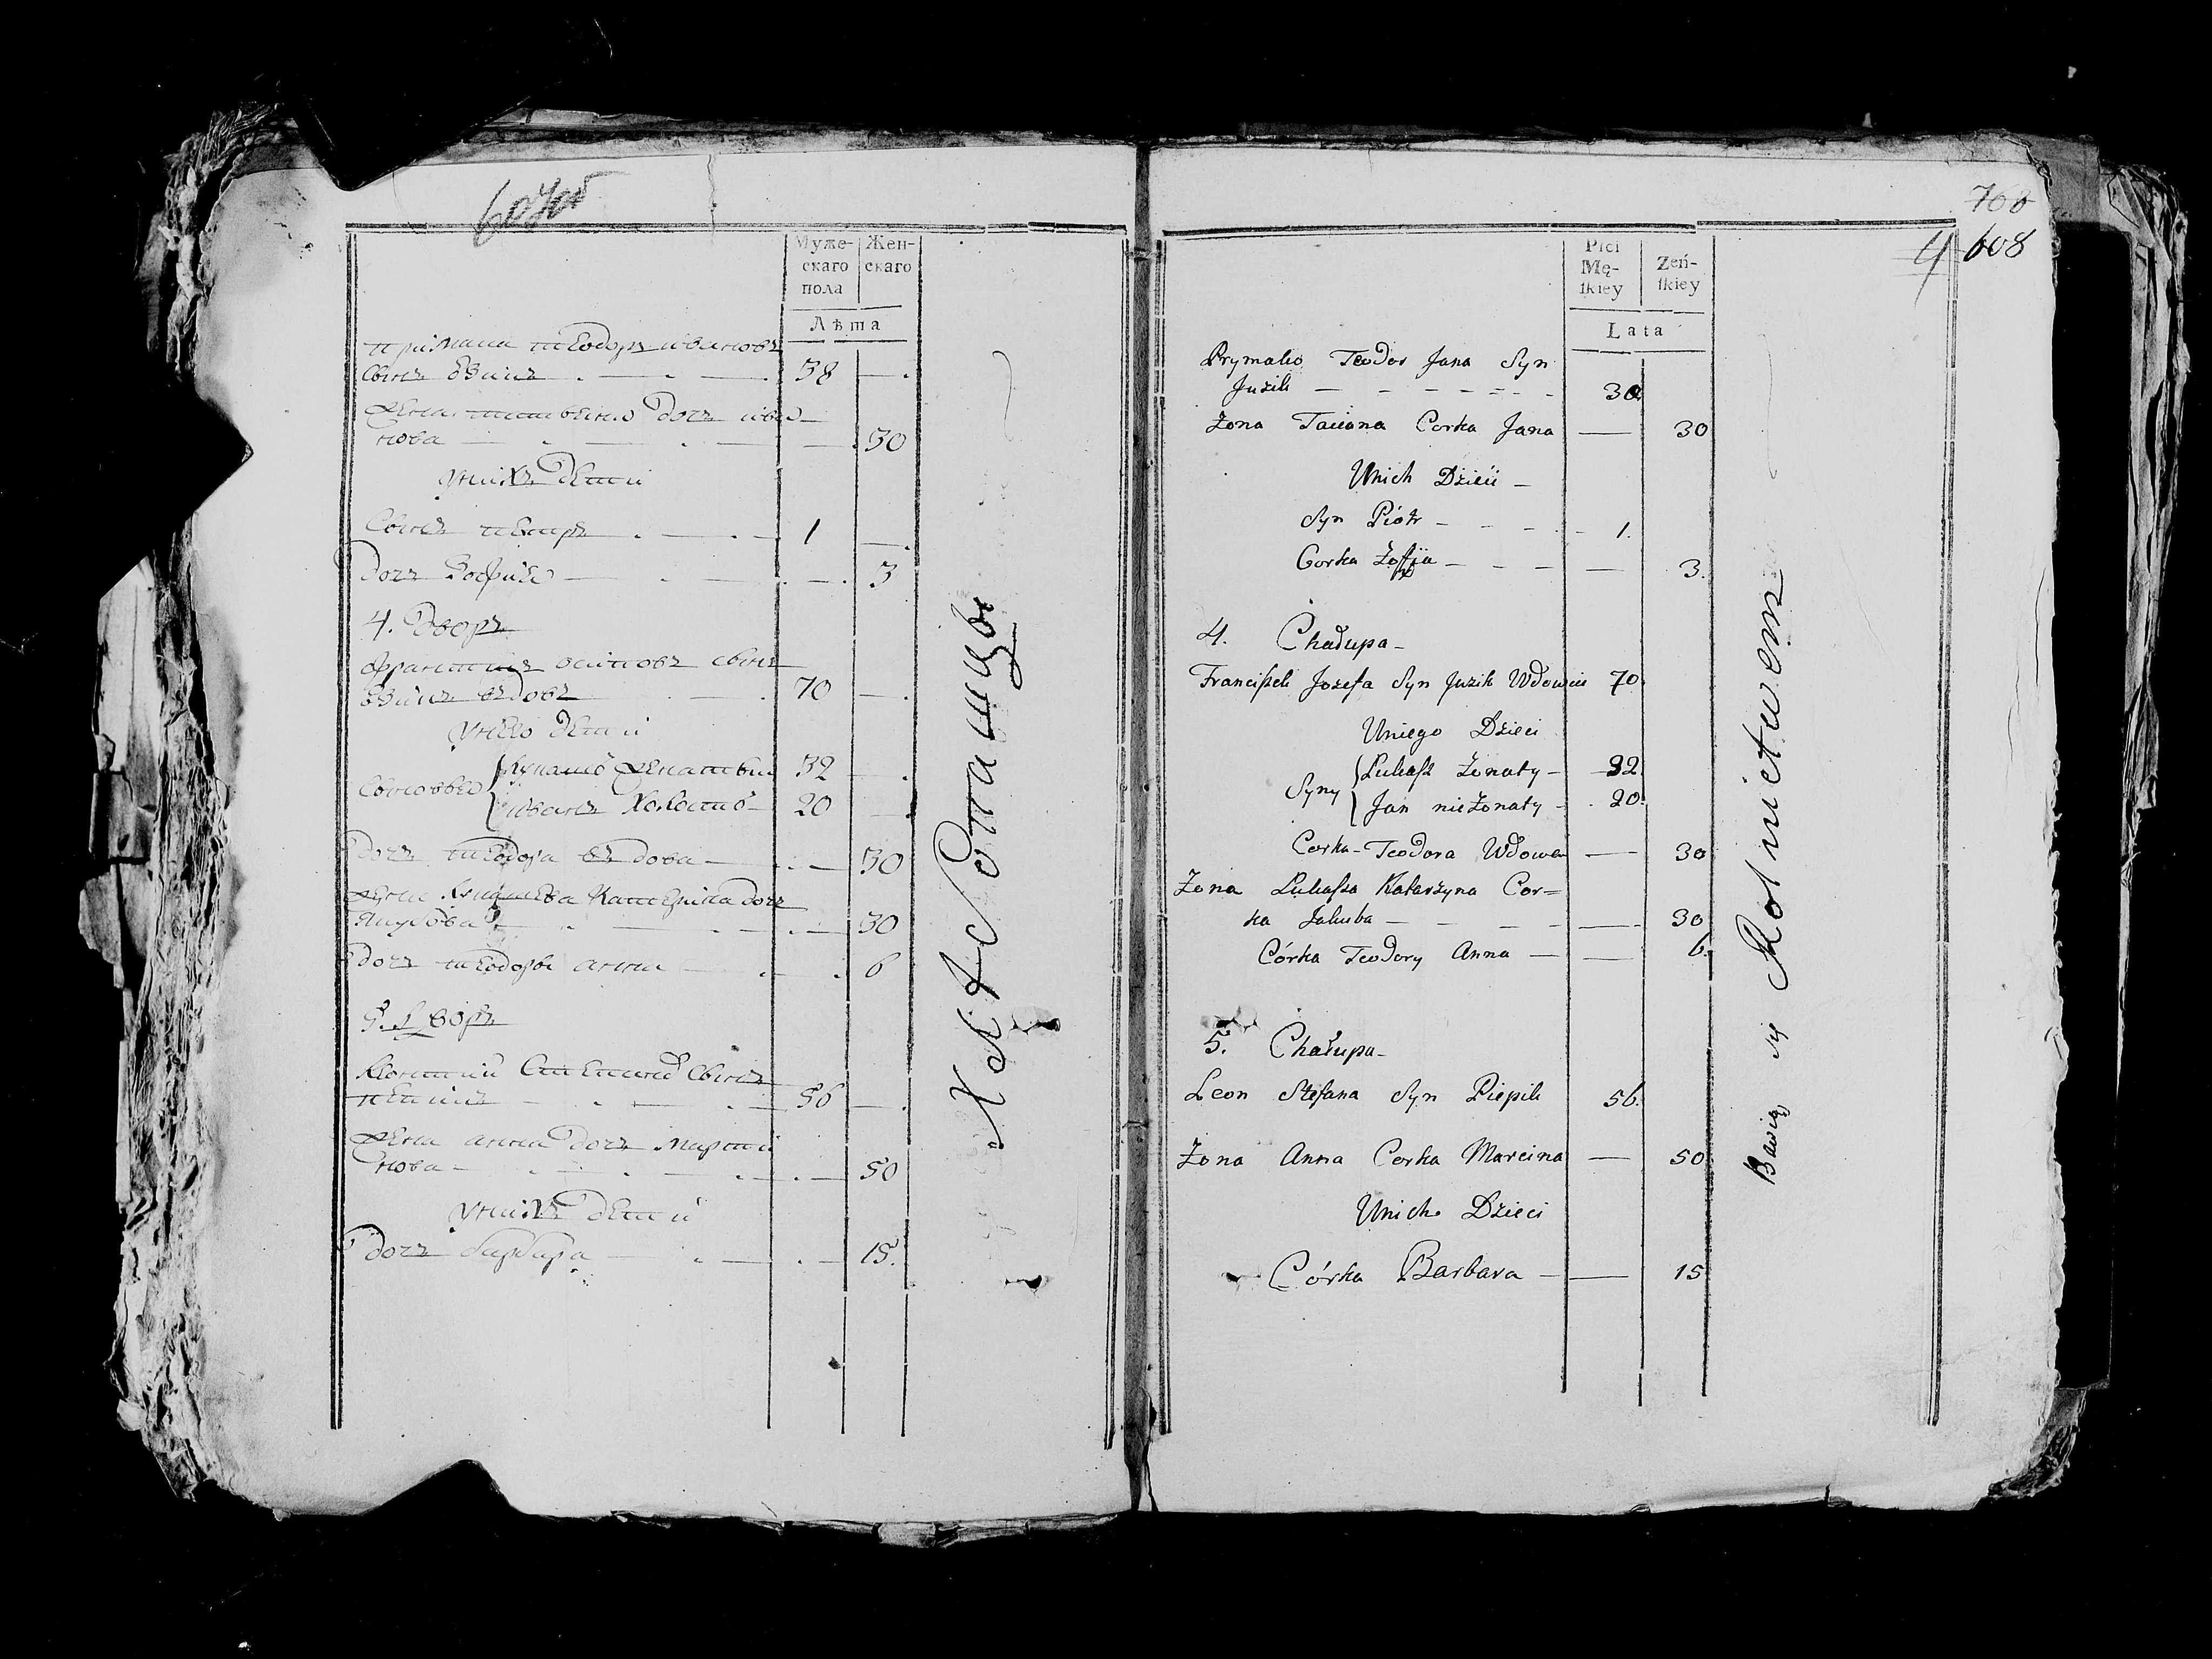 607об
Муже-
скаго
пола
Жен-
скаго
Лѣта
примака теодоръ ивановъ
сынъ юзикъ 38
жена татьяна дочь ива
нова 30
у нихъ дети
сынъ петръ 1
дочь зофия 3
4. дворъ
францишъ осиповъ сынъ
юзикъ вдовъ 70
у него дети
сыновья
лукашъ женаты 32
иванъ холосты 20
дочь теодора вдова 30
жена лукашева катерина дочь
якубова 30
дочь теодоры анна 6
5. дворъ
сынъ
56
жена анна дочь марти
нова 50
у нихъ дети
дочь барбара 15.
Хлебопашцы
768
4 608
Płci
Mę-
ſkiey
Żeń-
ſkiey
Lata
Prymako Teodor Jana Syn
Juzik — 30
Żona Taciana Corka Jana — 30
Unich Dzieci —
Syn Piotr — 1.
Corka Zoffja — 3.
4. Chałupa —
Franciſzek Jozefa Syn Juzik Wdowiec 70.
Uniego Dzieci
Syny
Łukaſz Żonaty — 32
Jan nieżonaty — 20.
Corka Teodora Wdowa — 30
Zona Łukaſza Katarzyna Cor=
ka Jakuba — 30
Córka Teodory Anna — 6.
5. Chałupa —
Leon Stefana Syn Piepik 56.
Żona Anna Corka Marcina — 50
Unich Dzieci
Córka Barbara — 15
Bawią się Rolnictwem